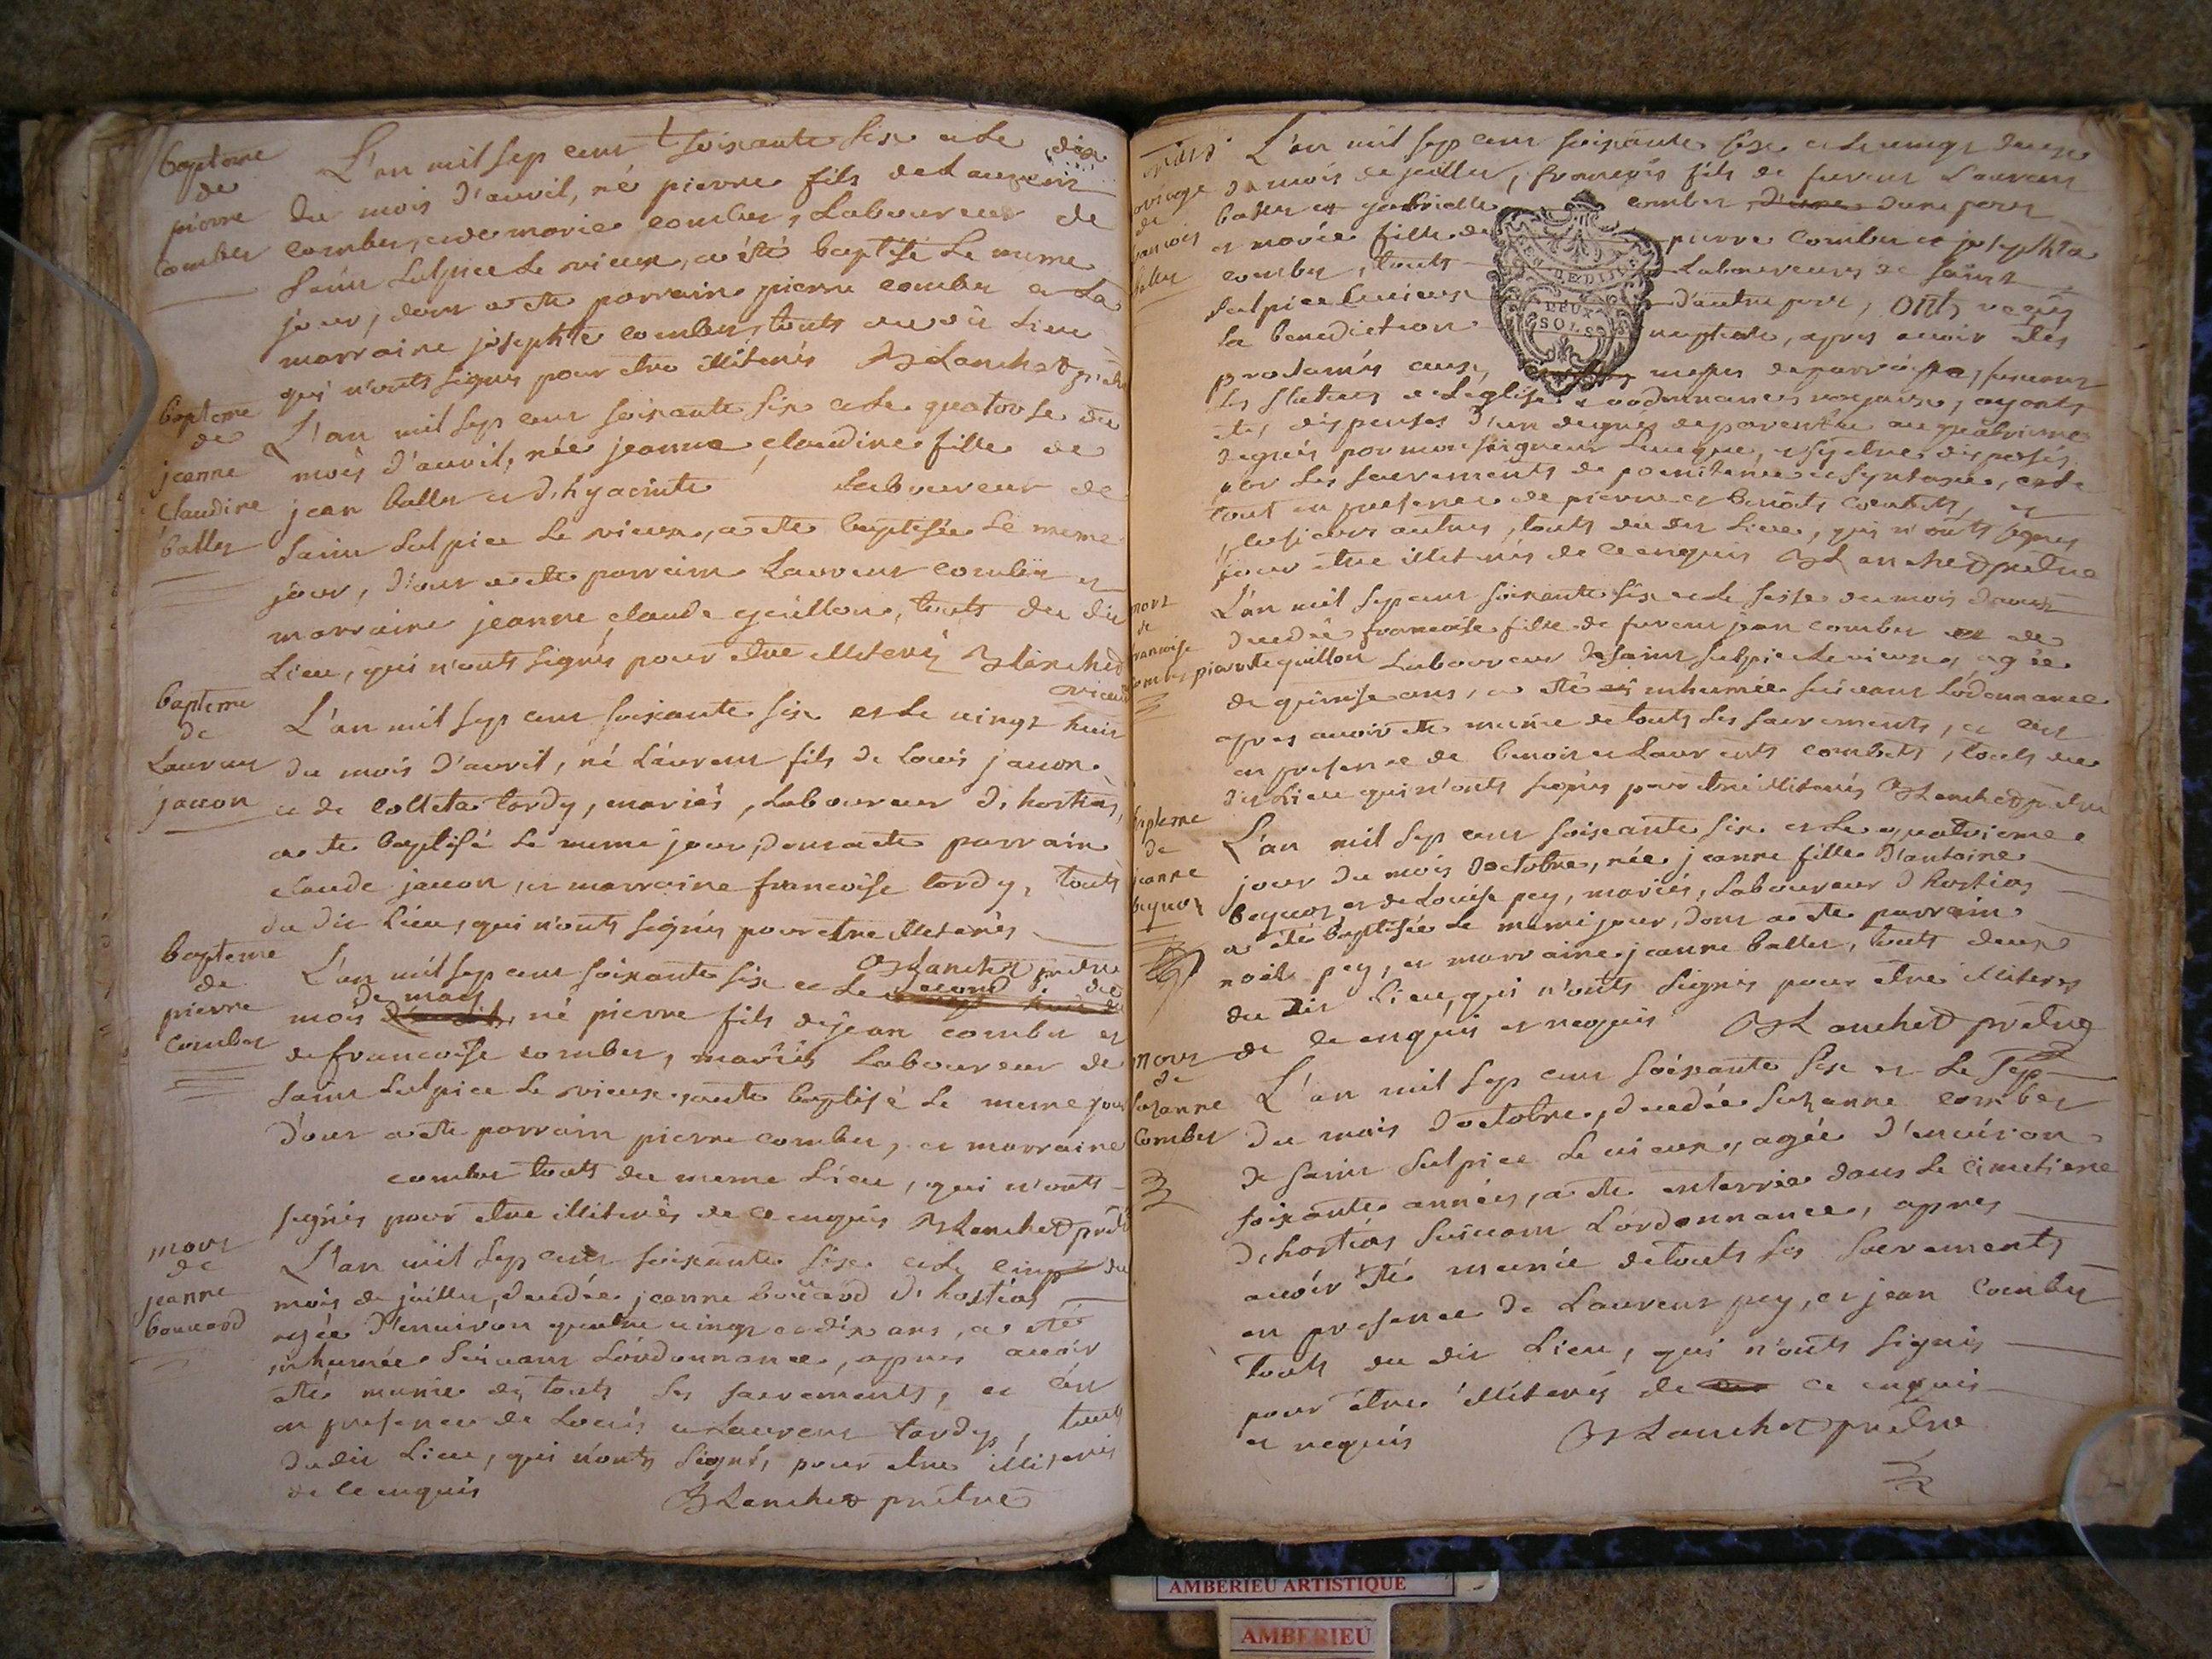 bapteme
de
pierre
combet
L'an mil sept cent soixante six et le dix
du mois d'avril, né pierre fils de Laurent
combet, et de marie combet, Laboureur de
saint Sulpice le vieux, a été baptisé le meme
jour, dont a ete parrain pierre combet et la
marraine josephte combet, touts du dit Lieu
qui n'onts signés pour etre illiterés Blanchet
bapteme
de
jeanne
claudine
ballet
L'an mil sept cent soixante six et le quatorse du
mois d'avril, née jeanne claudine fille de
jean ballet et d'hyacinte Laboureur de
saint Sulpice le vieux, a ete baptisée le meme
jour, d'ont a ete parrain Laurent combet et
marraine jeanne claude guillon, touts du dit
Lieu, qui n'onts signés pour etre illiterés Blanchet
vicaire
bapteme
de
Laurent
jacon
L'an mil sept cent soixante six et le vingt huit
du mois d'avril, né Laurent fils de Louis jacon
et de colleta tardy, mariés, Laboureur d'hostias,
a ete baptisé le meme jour, dont a ete parrain
claude jacon, et marraine francoise tardy, touts
du dit Lieu, qui n'onts signés pour etre illiterés
Blanchet prêtre
bapteme
de
pierre
combet
L'an mil sept cent soixante six et le second du
mois de may, né pierre fils de jean combet et
de francoise combet, mariés Laboureur de
saint Sulpice le vieux, a ete baptisé le meme jour
d'ont a ete parrain pierre combet, et marraine
combet touts du meme Lieu, qui n'onts
signés pour etre illiterés de ce enquis Blanchet prêtre
mort
de
jeanne
bouvard
L'an mil sept cent soixante six et le cinq du
mois de juillet, decedée jeanne bouvard d'hostias
agée d'environ quatre vingt et dix ans, a eté
inhumée suivant L'ordonnance, apres avoir
ete munie de touts les sacrements, et cen
en presence de Louis et Laurent tardy, touts
du dit Lieu, qui n'onts signés, pour etre illiterés
de ce enquis Blanchet prêtre
mariage
de
francois
ballet
L'an mil sept cent soixante six et le vingt deux
du mois de juillet, francois fils de Laurent
ballet et gabrielle combet, d'une part
et marie fille de pierre combet et josephta
combet, touts Laboureurs de saint
Sulpice le vieux d'autre part, onts reçus
GEN. DE DIJON
DEUX
SOLS
la benediction nuptiale, apres avoir etes
proclamés aux messes de parroisse, suivant
les statuts de L'eglise et ordonnances royaux, ayants
etes dispenses d'un degres de parenté au quatrieme
degrés par monseigneur L'eveque, et s'y etre disposés
par les sacrements de poenitence et
tout en presence de pierre et benoits combets, et
plusieurs autres, touts du dit Lieu, qui n'onts signés
pour etre illiterés de ce enquis Blanchet prêtre
mort
de
francoise
combet
L'an mil sept cent soixante six et le seise du mois d'aoust
decedée francoise fille de jean combet et de
pierrette guillon Laboureur de saint Sulpice le vieux, agée
de quinse ans, a eté inhumée suivant L'ordonnance
apres avoir ete munie de touts les sacrements, et cen
en presence de benoit et Laurents combets, touts du
dit Lieu qui n'onts signés pour etre illiterés Blanchet prêtre
bapteme
de
jeanne
L'an mil sept cent soixante six et le quatrieme
jour du mois d'octobre, née jeanne fille d'antoine
et de Louise pey, mariés, Laboureur d'hostias
a été baptisée le meme jour, dont a ete parrain
noël pey, et marraine jeanne ballet, touts deux
du dit Lieu, qui n'onts signés pour etre illiterés
de ce enquis et requis Blanchet prêtre
mort
de
suzanne
combet
L'an mil sept cent soixante six et le sept
du mois d'octobre, decedée suzanne combet
de saint Sulpice le vieux, agée d'environ
soixante années, a ete enterrée dans le cimetiere
d'hostias suivant L'ordonnance, apres
avoir été munie de touts les sacrements
en presence de Laurent pey, et jean combet
touts du dit Lieu, qui n'onts signés
pour être illiterés de ce enquis
et requis Blanchet prêtre
AMBERIEU ARTISTIQUE
AMBERIEU